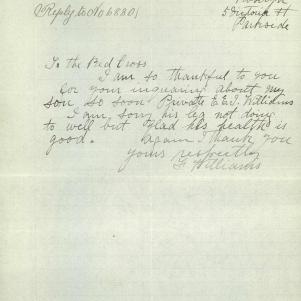 (Reply to No 6880)
5 Victoria St
Parkside
To the Red Cross
I am so thankful to you
for your inquiring about my
son so soon Private E.W. Williams
I am sorry his leg not doing
to well but glad his health is
good. Again I thank you
yours respectfly
F Williams